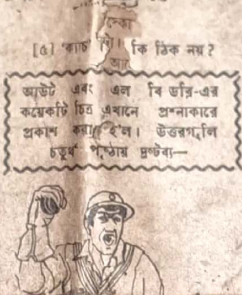 [৫] 'ক্যাচ' কি ঠিক নয়?
আউট এবং এল বি ডব্লি-এর
কয়েকটি চিত্র এখানে প্রশ্নাকারে
প্রকাশ করা হ'ল। উত্তরগুলি
চতুর্থ পৃষ্ঠায় দ্রষ্টব্য—